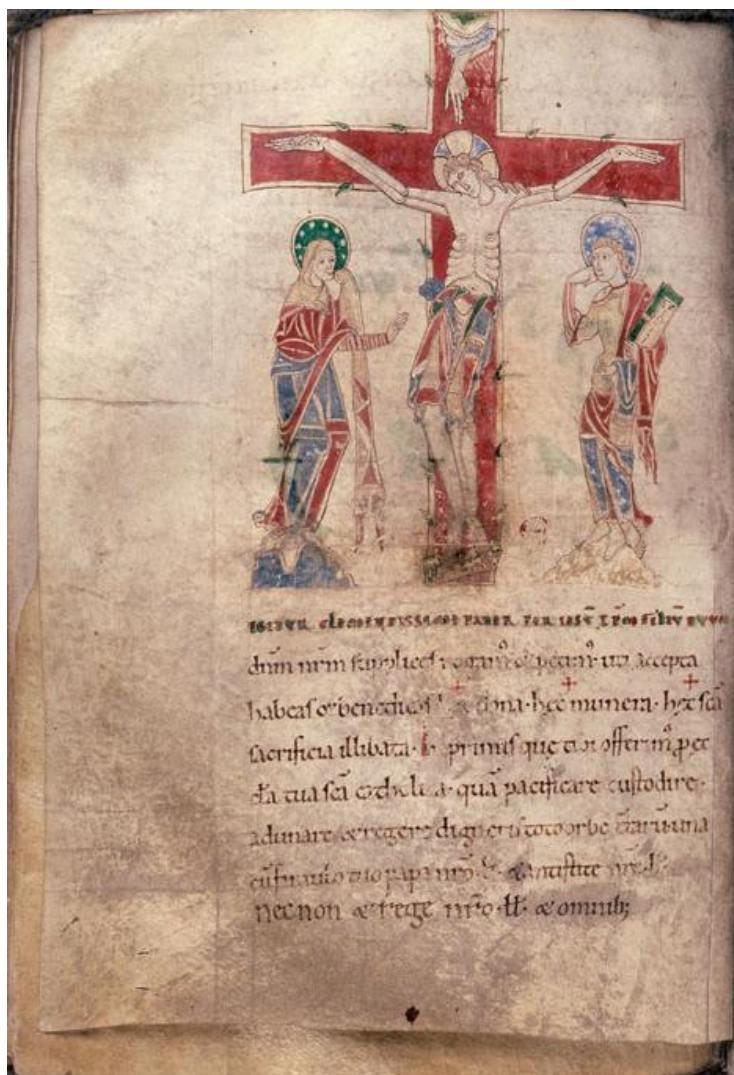 IGITUR CLEMENTISSIME PATER PER IESŪ XPM FILIŪ TUUM
dñm nr̄m supplices rogam᷒ & petim᷒ uti accepta
habeas & benedicas + dona · hęc + munera · hęc + sc̄a
sacrificia illibata · I primis que tibi offerim᷒ p ęc
cl̄a tua sc̄a catholica · quā pacificare custodire ·
adunare & regere digneris toto orbe t̄rarū una
cū famulo tuo papa nr̄o · ił · & antistite nr̄o · ił ·
necnon & rege nr̄o · ił · & omnib;